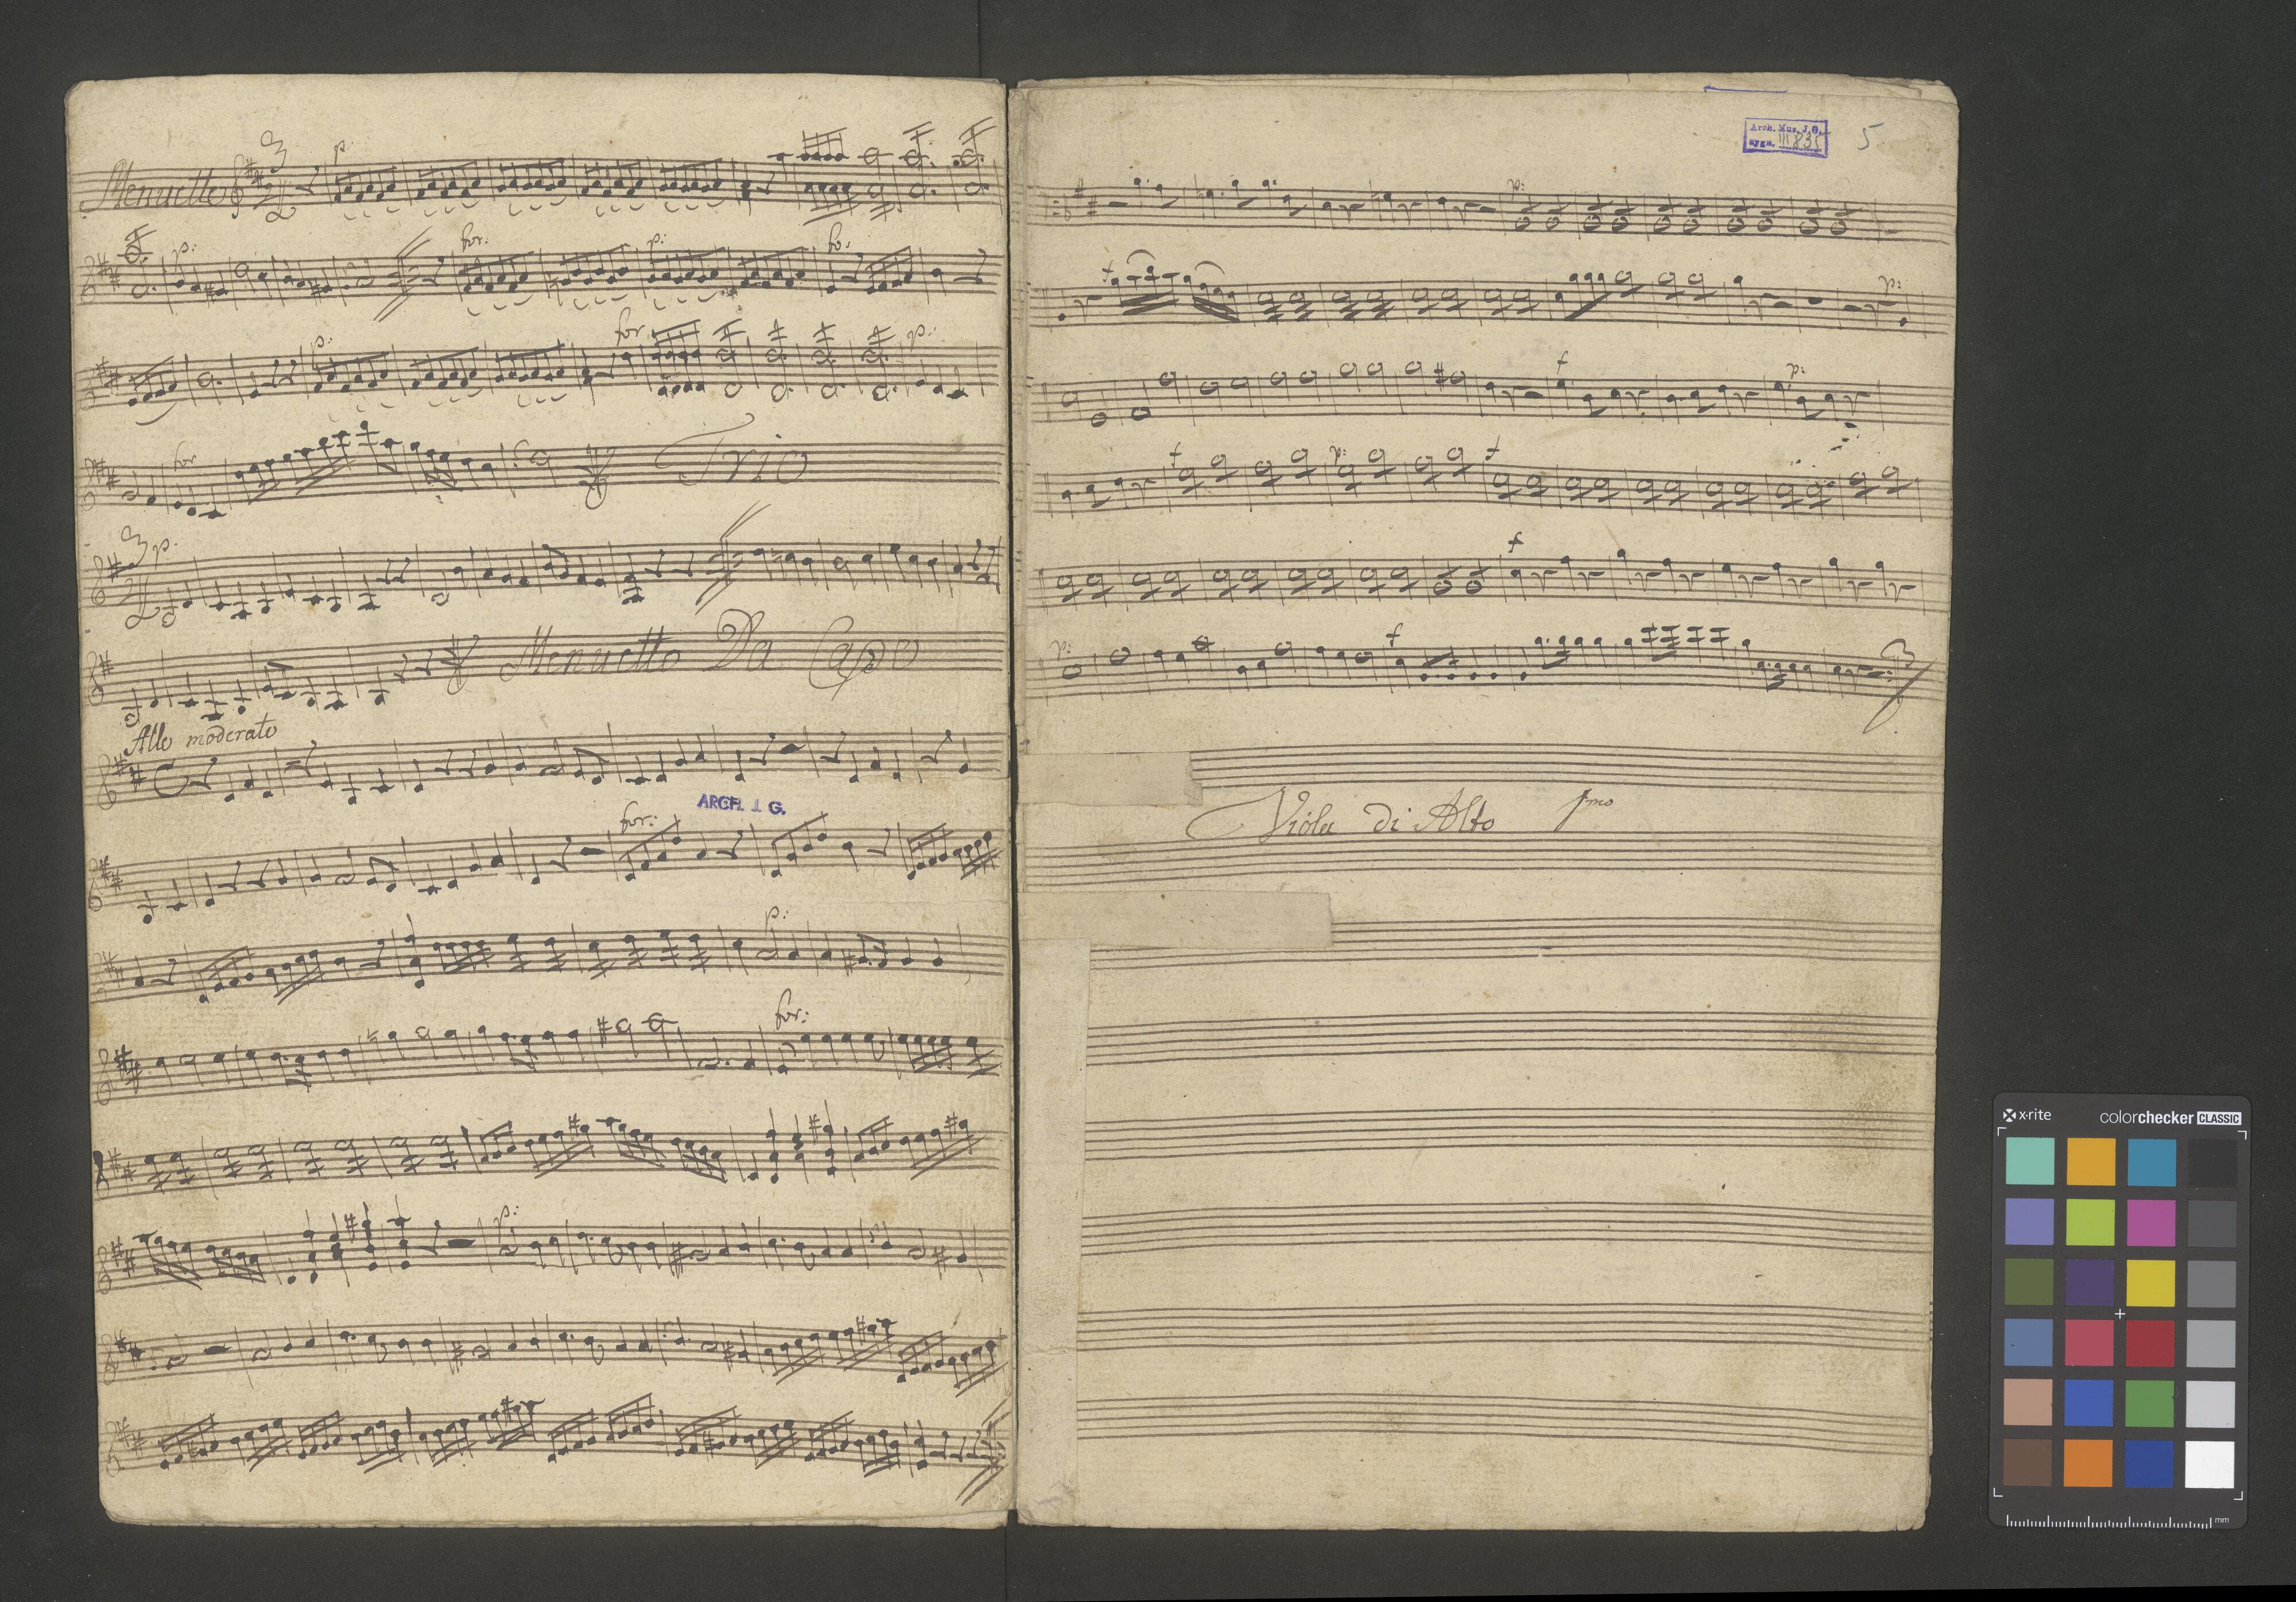 Menuetto 3 p.
p: for: p: for:
p: for p:
for Trio
3 p.
Menuetto Da Capo
Allo moderato
ARCH. J. G.
for:
p:
for:
p:
Arch. Mus. J. G.
sygn. III 835
5
p:
f p:
f p:
f p: f
f
p: f
Viola di Alto 1mo
x-rite colorchecker CLASSIC
mm